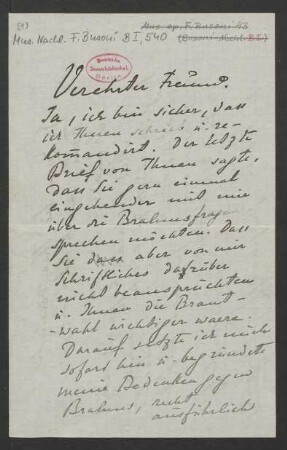 Mus. ep. F. Busoni 43
Mus. Nachl. F. Busoni B I, 540
(Busoni-Nachl. B I)
Deutsche
Staatsbibliothek
Berlin
Verehrter Freund.
Ja, ich bin sicher, dass
ich Ihnen schrieb u. re-
kommandirt. Der letzte
Brief von Ihnen sagte,
dass Sie gern einmal
eingehender mit mir
über die Brahmsfrage
sprechen möchten. Dass
Sie dann aber von mir
Schriftliches darüber
nicht beanspruchten
u. Ihnen die Braut-
wahl wichtiger waere.
Darauf setzte ich mich
sofort hin u. begründete
meine Bedenken gegen
Brahms, recht
ausführlich